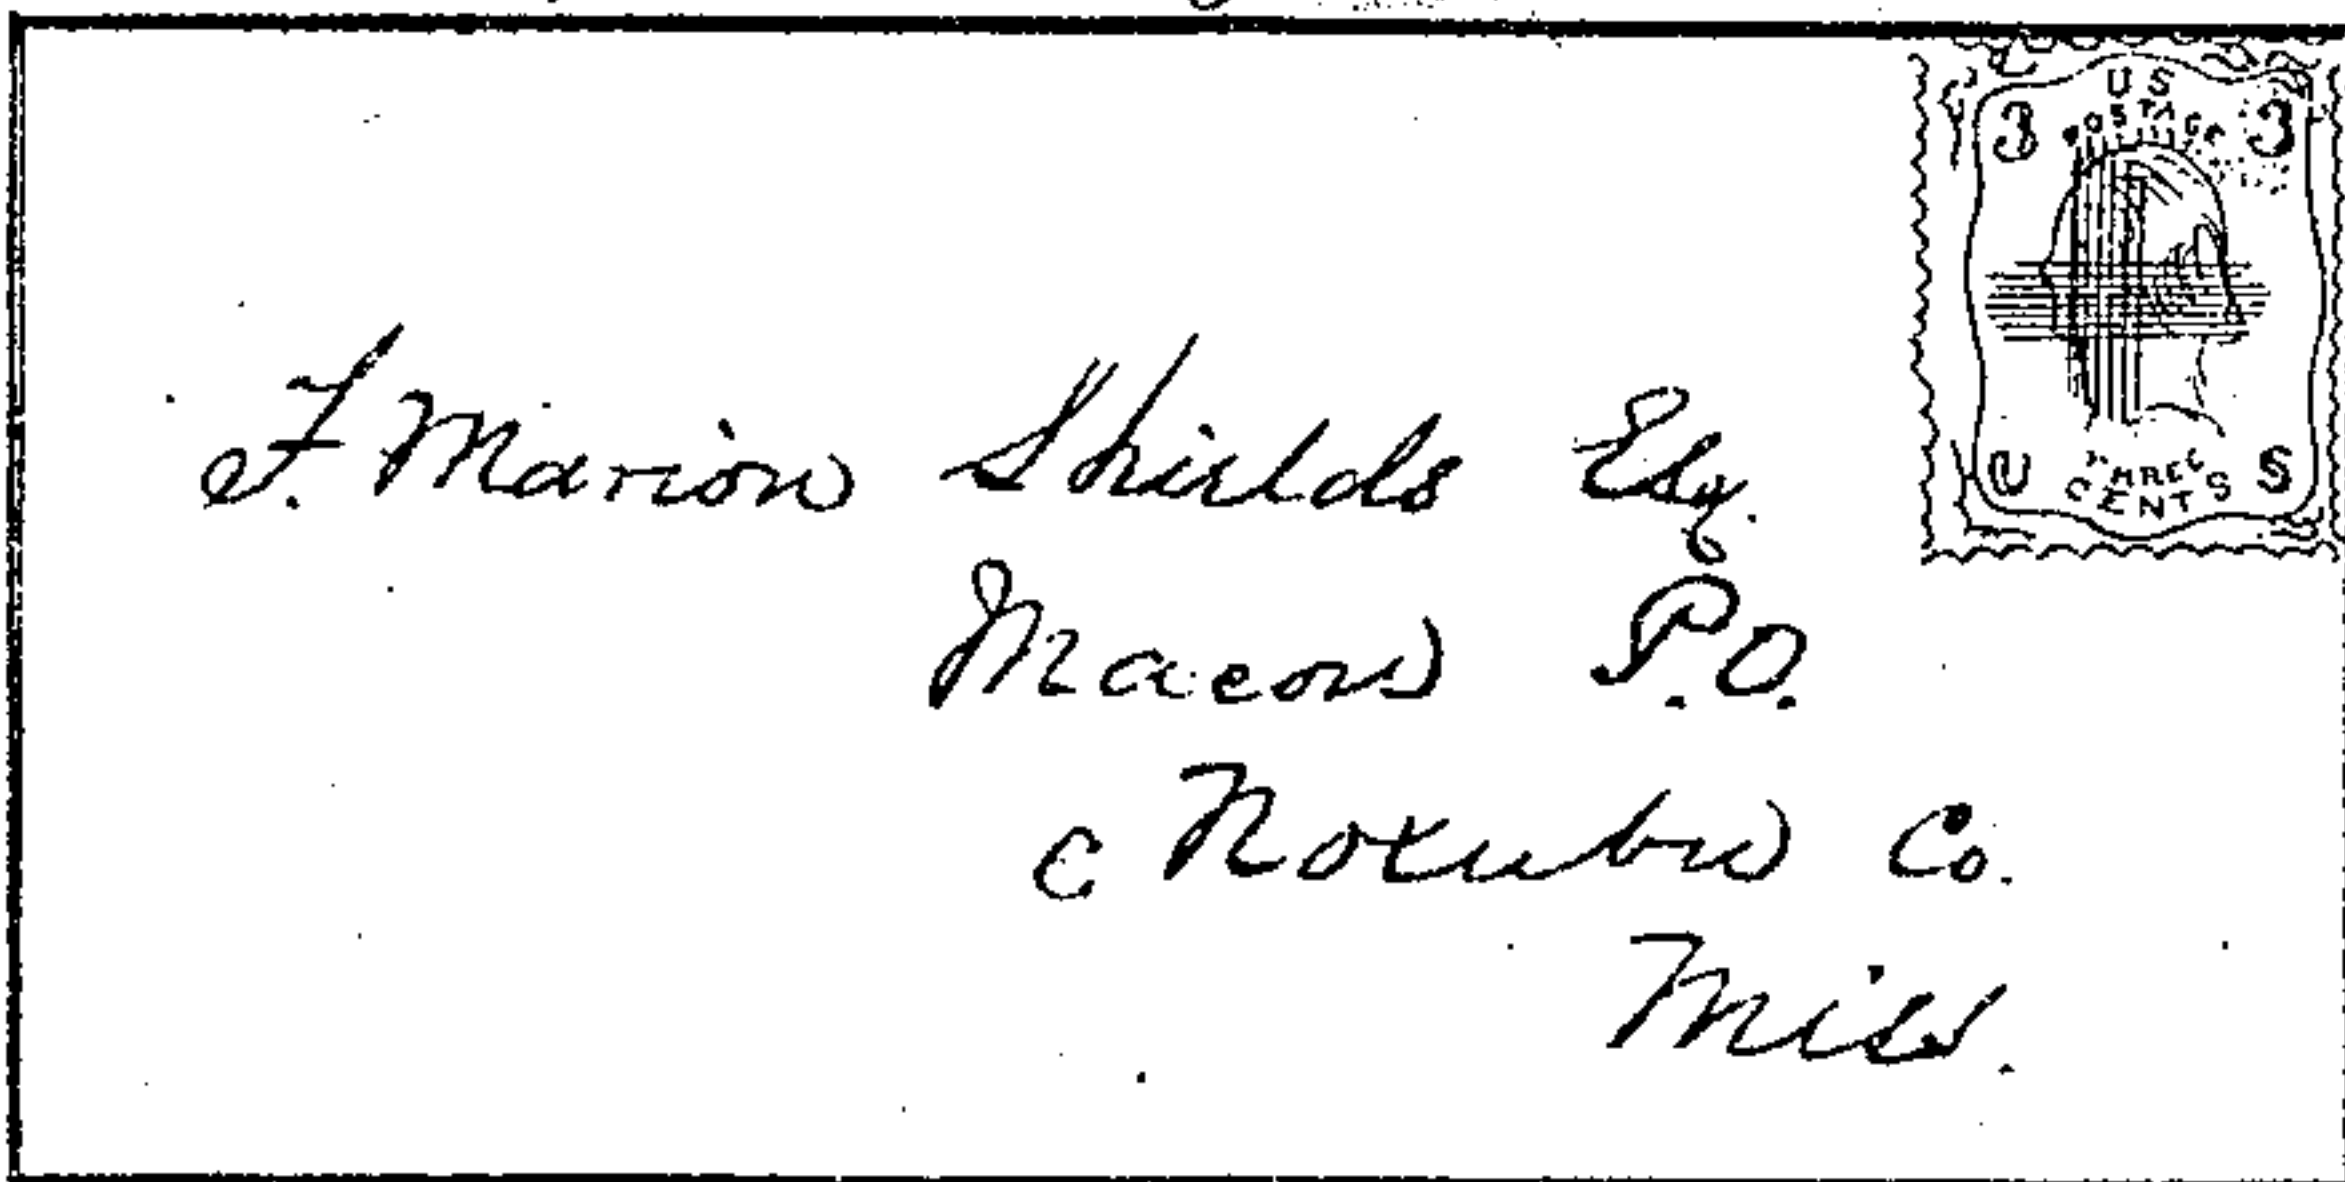 U S
3 POSTAGE 3
U THREE S
CENTS
F. Marion Shields Esq.
Macon P.O.
c Noxubee Co.
Miss.